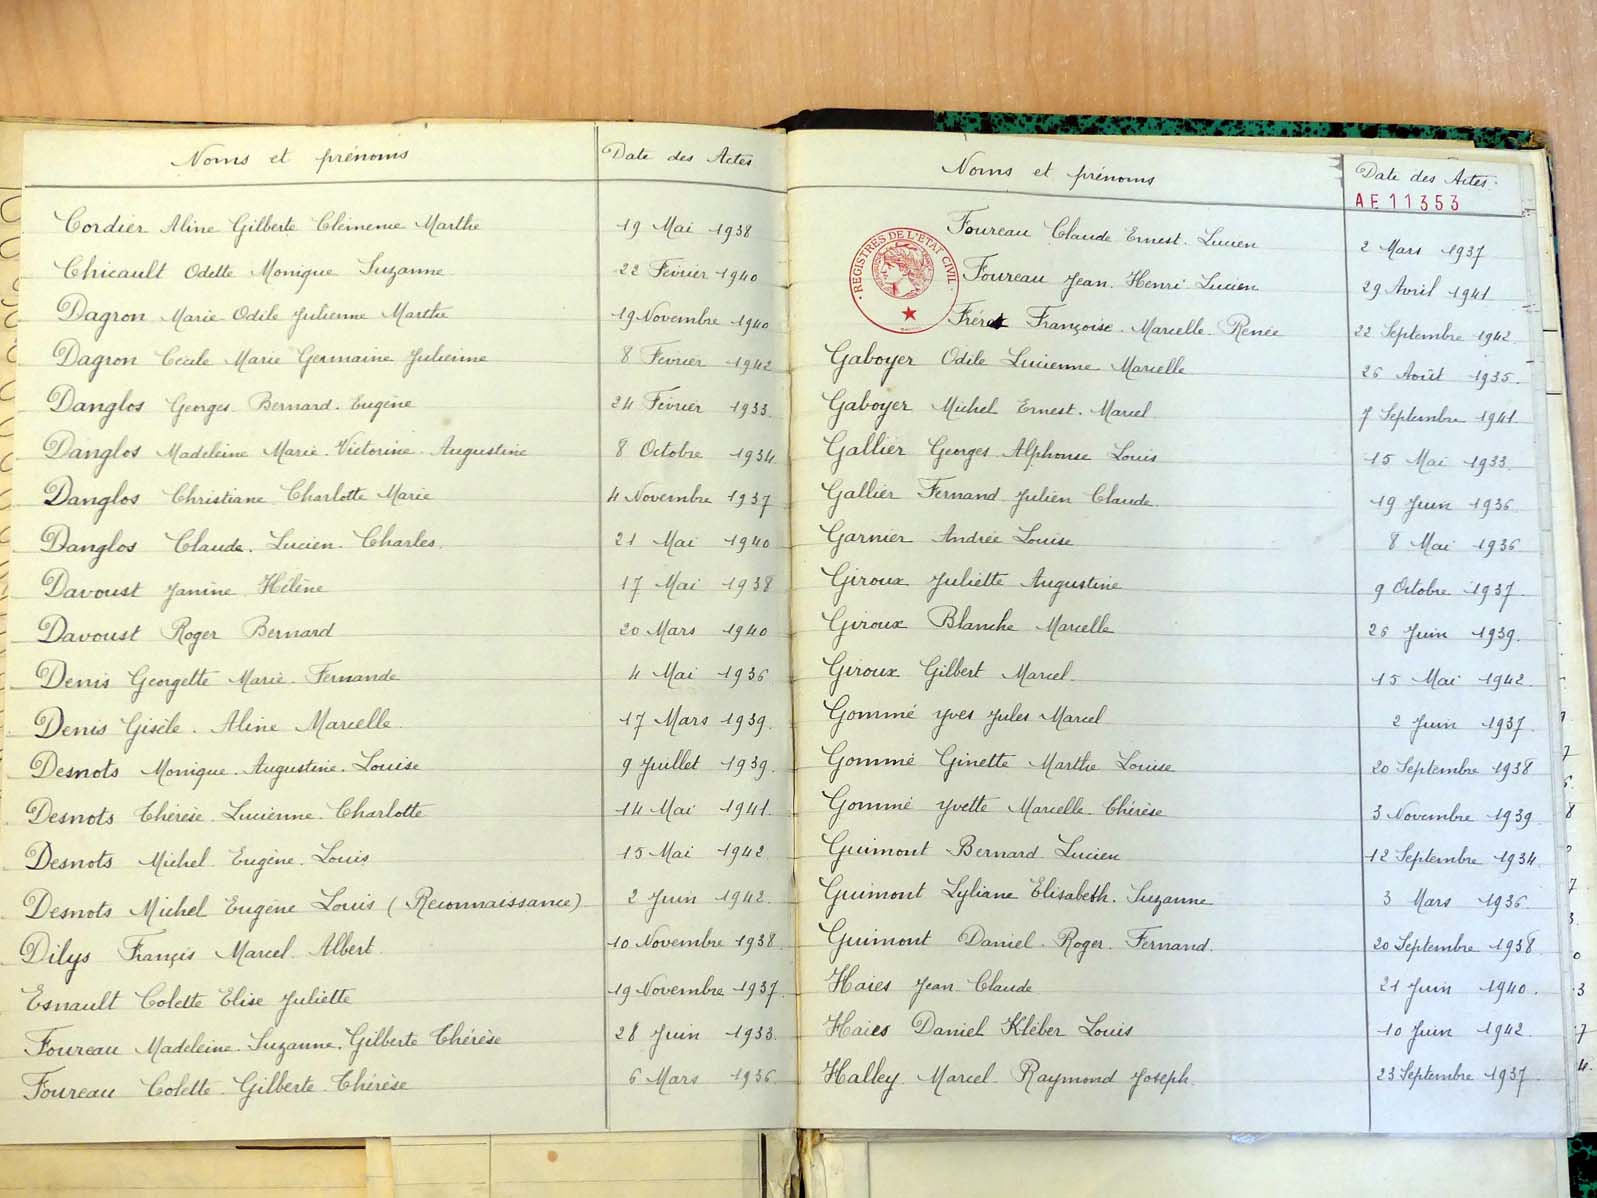 Noms et prénoms Date des Actes
Cordier Aline Gilberte Clémence Marthe 19 Mai 1938
Chicault Odette Monique Suzanne 22 Février 1940
Dagron Marie Odile Julienne Marthe 19 Novembre 1940
Dagron Cécile Marie Germaine Julienne 8 Février 1942
Danglos Georges Bernard Eugène 24 Février 1933
Danglos Madeleine Marie Victorine Augustine 8 Octobre 1934
Danglos Christiane Charlotte Marie 4 Novembre 1937
Danglos Claude Lucien Charles 21 Mai 1940
Davoust Janine Hélène 17 Mai 1938
Davoust Roger Bernard 20 Mars 1940
Denis Georgette Marie Fernande 4 Mai 1936
Denis Gisèle Aline Marcelle 17 Mars 1939
Desnots Monique Augustine Louise 9 Juillet 1939
Desnots Thérèse Lucienne Charlotte 14 Mai 1941
Desnots Michel Eugène Louis 15 Mai 1942
Desnots Michel Eugène Louis (Reconnaissance) 2 Juin 1942
Dilys Françis Marcel Albert 10 Novembre 1938
Esnault Colette Elise Juliette 19 Novembre 1937
Foureau Madeleine Suzanne Gilberte Thérèse 28 Juin 1933
Foureau Colette Gilberte Thérèse 6 Mars 1936
Noms et prénoms Date des Actes
AE11353
REGISTRES DE L'ÉTAT CIVIL
Foureau Claude Ernest Lucien 2 Mars 1937
Foureau Jean Henri Lucien 29 Avril 1941
Françoise Marcelle Renée 22 Septembre 1942
Gaboyer Odile Lucienne Marcelle 26 Août 1935
Gaboyer Michel Ernest Marcel 7 Septembre 1941
Gallier Georges Alphonse Louis 15 Mai 1933
Gallier Fernand Julien Claude 19 Juin 1936
Garnier Andrée Louise 8 Mai 1936
Giroux Juliette Augustine 9 Octobre 1937
Giroux Blanche Marcelle 26 Juin 1939
Giroux Gilbert Marcel 15 Mai 1942
Gommé Yves Jules Marcel 2 Juin 1937
Gommé Ginette Marthe Louise 20 Septembre 1938
Gommé Yvette Marcelle Thérèse 3 Novembre 1939
Guimont Bernard Lucien 12 Septembre 1934
Guimont Lyliane Elisabeth Suzanne 3 Mars 1936
Guimont Daniel Roger Fernand 20 Septembre 1938
Haies Jean Claude 21 Juin 1940
Haies Daniel Kléber Louis 10 Juin 1942
Halley Marcel Raymond Joseph 23 Septembre 1937